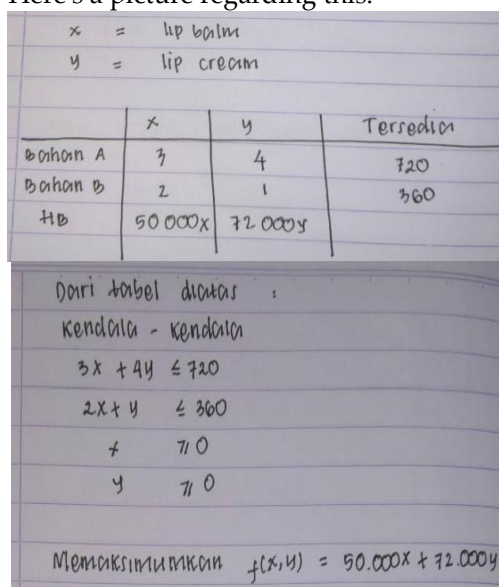 Here's a picture regarding this.
x = lip balm
y = lip cream
x y Tersedia
Bahan A 3 4 720
Bahan B 2 1 360
HB 50 000x 72 000y
Dari tabel diatas :
Kendala - kendala
3x + 4y ≤ 720
2x + y ≤ 360
x ≥ 0
y ≥ 0
Memaksimumkan f(x,y) = 50.000x + 72.000y